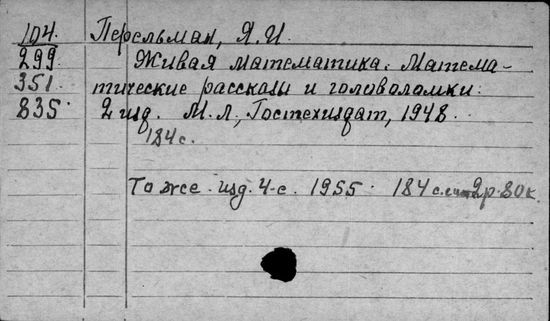 104. Перельман, Я.И.
299. Живая математика. Матема-
351. тические рассказы и головоломки.
835. 2 изд. М.Л., Гостехиздат, 1948.
184 с.
То же. изд. 4-е. 1955. 184 с. 2р. 80к.